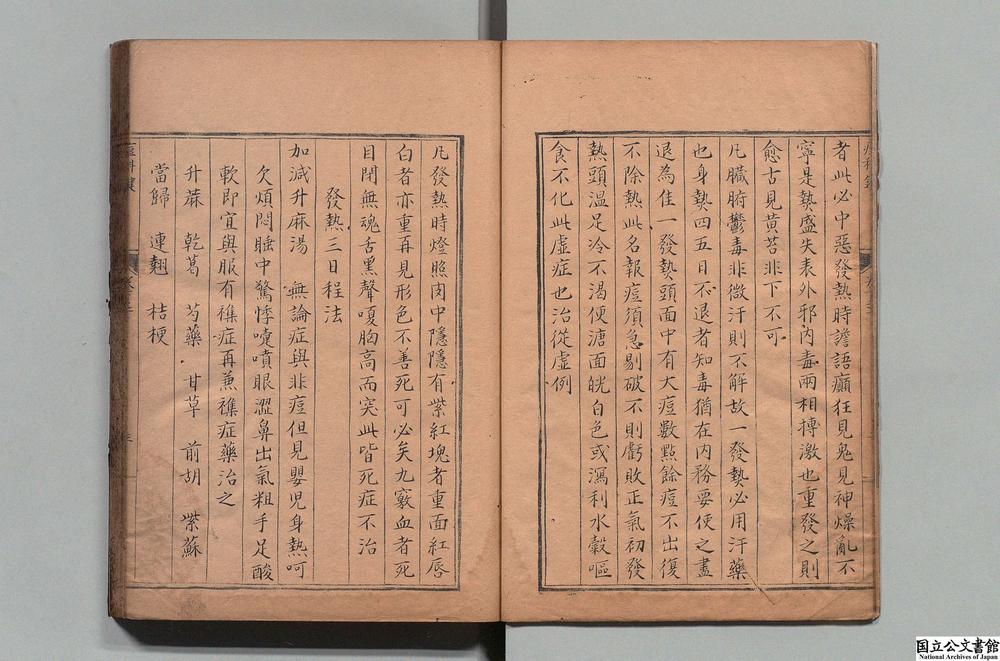 者此必中惡發熱時譫語癲狂見鬼見神燥亂不
寧是熱盛失表外邪內毒兩相搏激也重發之則
愈古見黃苔非下不可
凡臟腑鬱毒非微汗則不解故一發熱必用汗藥
也身熱四五日不退者知毒猶在內務要使之盡
退為佳一發熱頭面中有大痘數點餘痘不出復
不除熱此名報痘須急剔破不則虧敗正氣初發
熱頭溫足冷不渴便溏面㿠白色或瀉利水穀嘔
食不化此虛症也治從虛例
凡發熱時燈照肉中隱隱有紫紅塊者重面紅唇
白者亦重再見形色不善死可必矣九竅血者死
目閉無魂舌黑聲嗄胸高而突此皆死症不治
發熱三日程法
加減升麻湯 無論症與非痘但見嬰兒身熱呵
欠煩悶睡中驚悸嚏噴眼澀鼻出氣粗手足酸
軟即宜與服有襍症再兼襍症藥治之
升蔴 乾葛 芍藥 甘草 前胡 紫蘇
當歸 連翹 桔梗
国立公文書館
National Archives of Japan